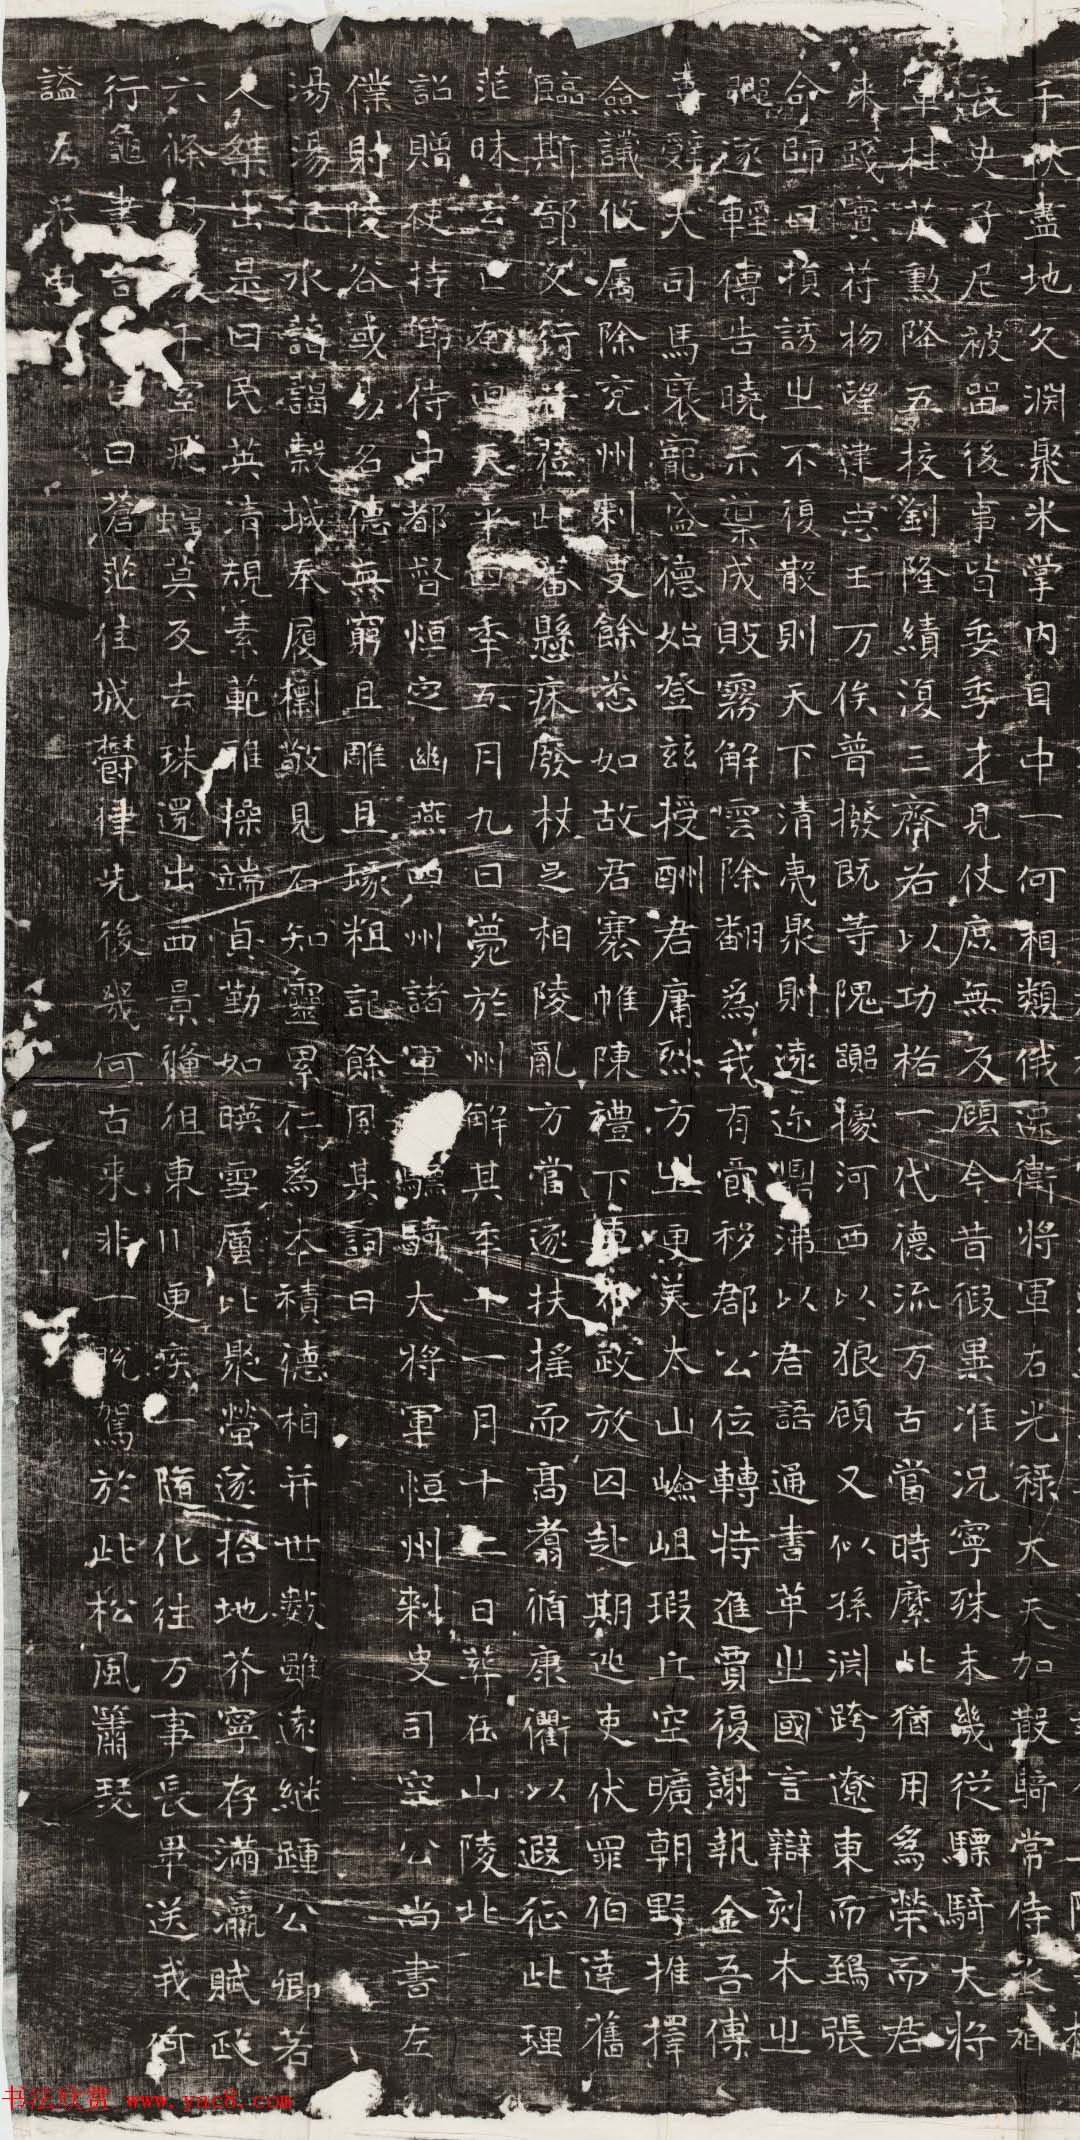 千狀盡地夂渊聚米掌内目中一何相類俄遷衛將軍右光禄大夫加散騎常侍
史子尼被留後事皆委季才見仗庶無反顧今昔假異准况寧殊未幾從驃騎大將
軍杜茂勲降五挍劉隆績復三齊君以功格一代德流万古當時縻此猶用爲榮而君
来踐寶符物望建忠王万俟普撥既等隗囂據河西以狼顧又似孫渊跨遼東而鵄張
命師曰損誘之不復散則天下清夷聚則遠迩鼎沸以君語通書革之國言辯刻木之
郷遂輕傳告曉示渠成敗霧解雲除翻爲我有爵移郡公位轉特進賈復謝執金吾傅
喜辭大司馬裒寵盛德始登兹授酬君庸烈方之更美太山嶮岨瑕丘空曠朝野推擇
僉議攸屬除兖州刺史餘悉如故君褰帷陳禮下車布政放囚赴期逃吏伏罪伯達舊
臨斯部父行君此蕃懸床廢杖足相陵亂方當遂扶揺而髙翥循康衢以遐征此理
茫昧云亡奄迴天平四年五月九日薨於州解其年十一月十二日葬在山陵北
詔贈使持節侍中都督恒定幽燕四州諸軍驃騎大將軍恒州刺史司空公尚書左
僕射陵谷或易名德無窮且雕且琢粗記餘風其詞曰
湯湯水藹藹穀城奉履橋敬見石知靈累仁爲本積德相并世數雖遠継踵公卿若
人桀出是曰民英清規素範雅操端貞勤如暎雪厲比聚螢遂拾地芥寧存滿籯賦政
六條千室飛蝗莫及去珠還出西景儵徂東川更疾一隨化往万事長畢送我何
行龜書告曰蒼茫佳城欝律先後幾何古来非一既駕於此松風簫瑟
諡君
书法欣赏 www.yac8.com